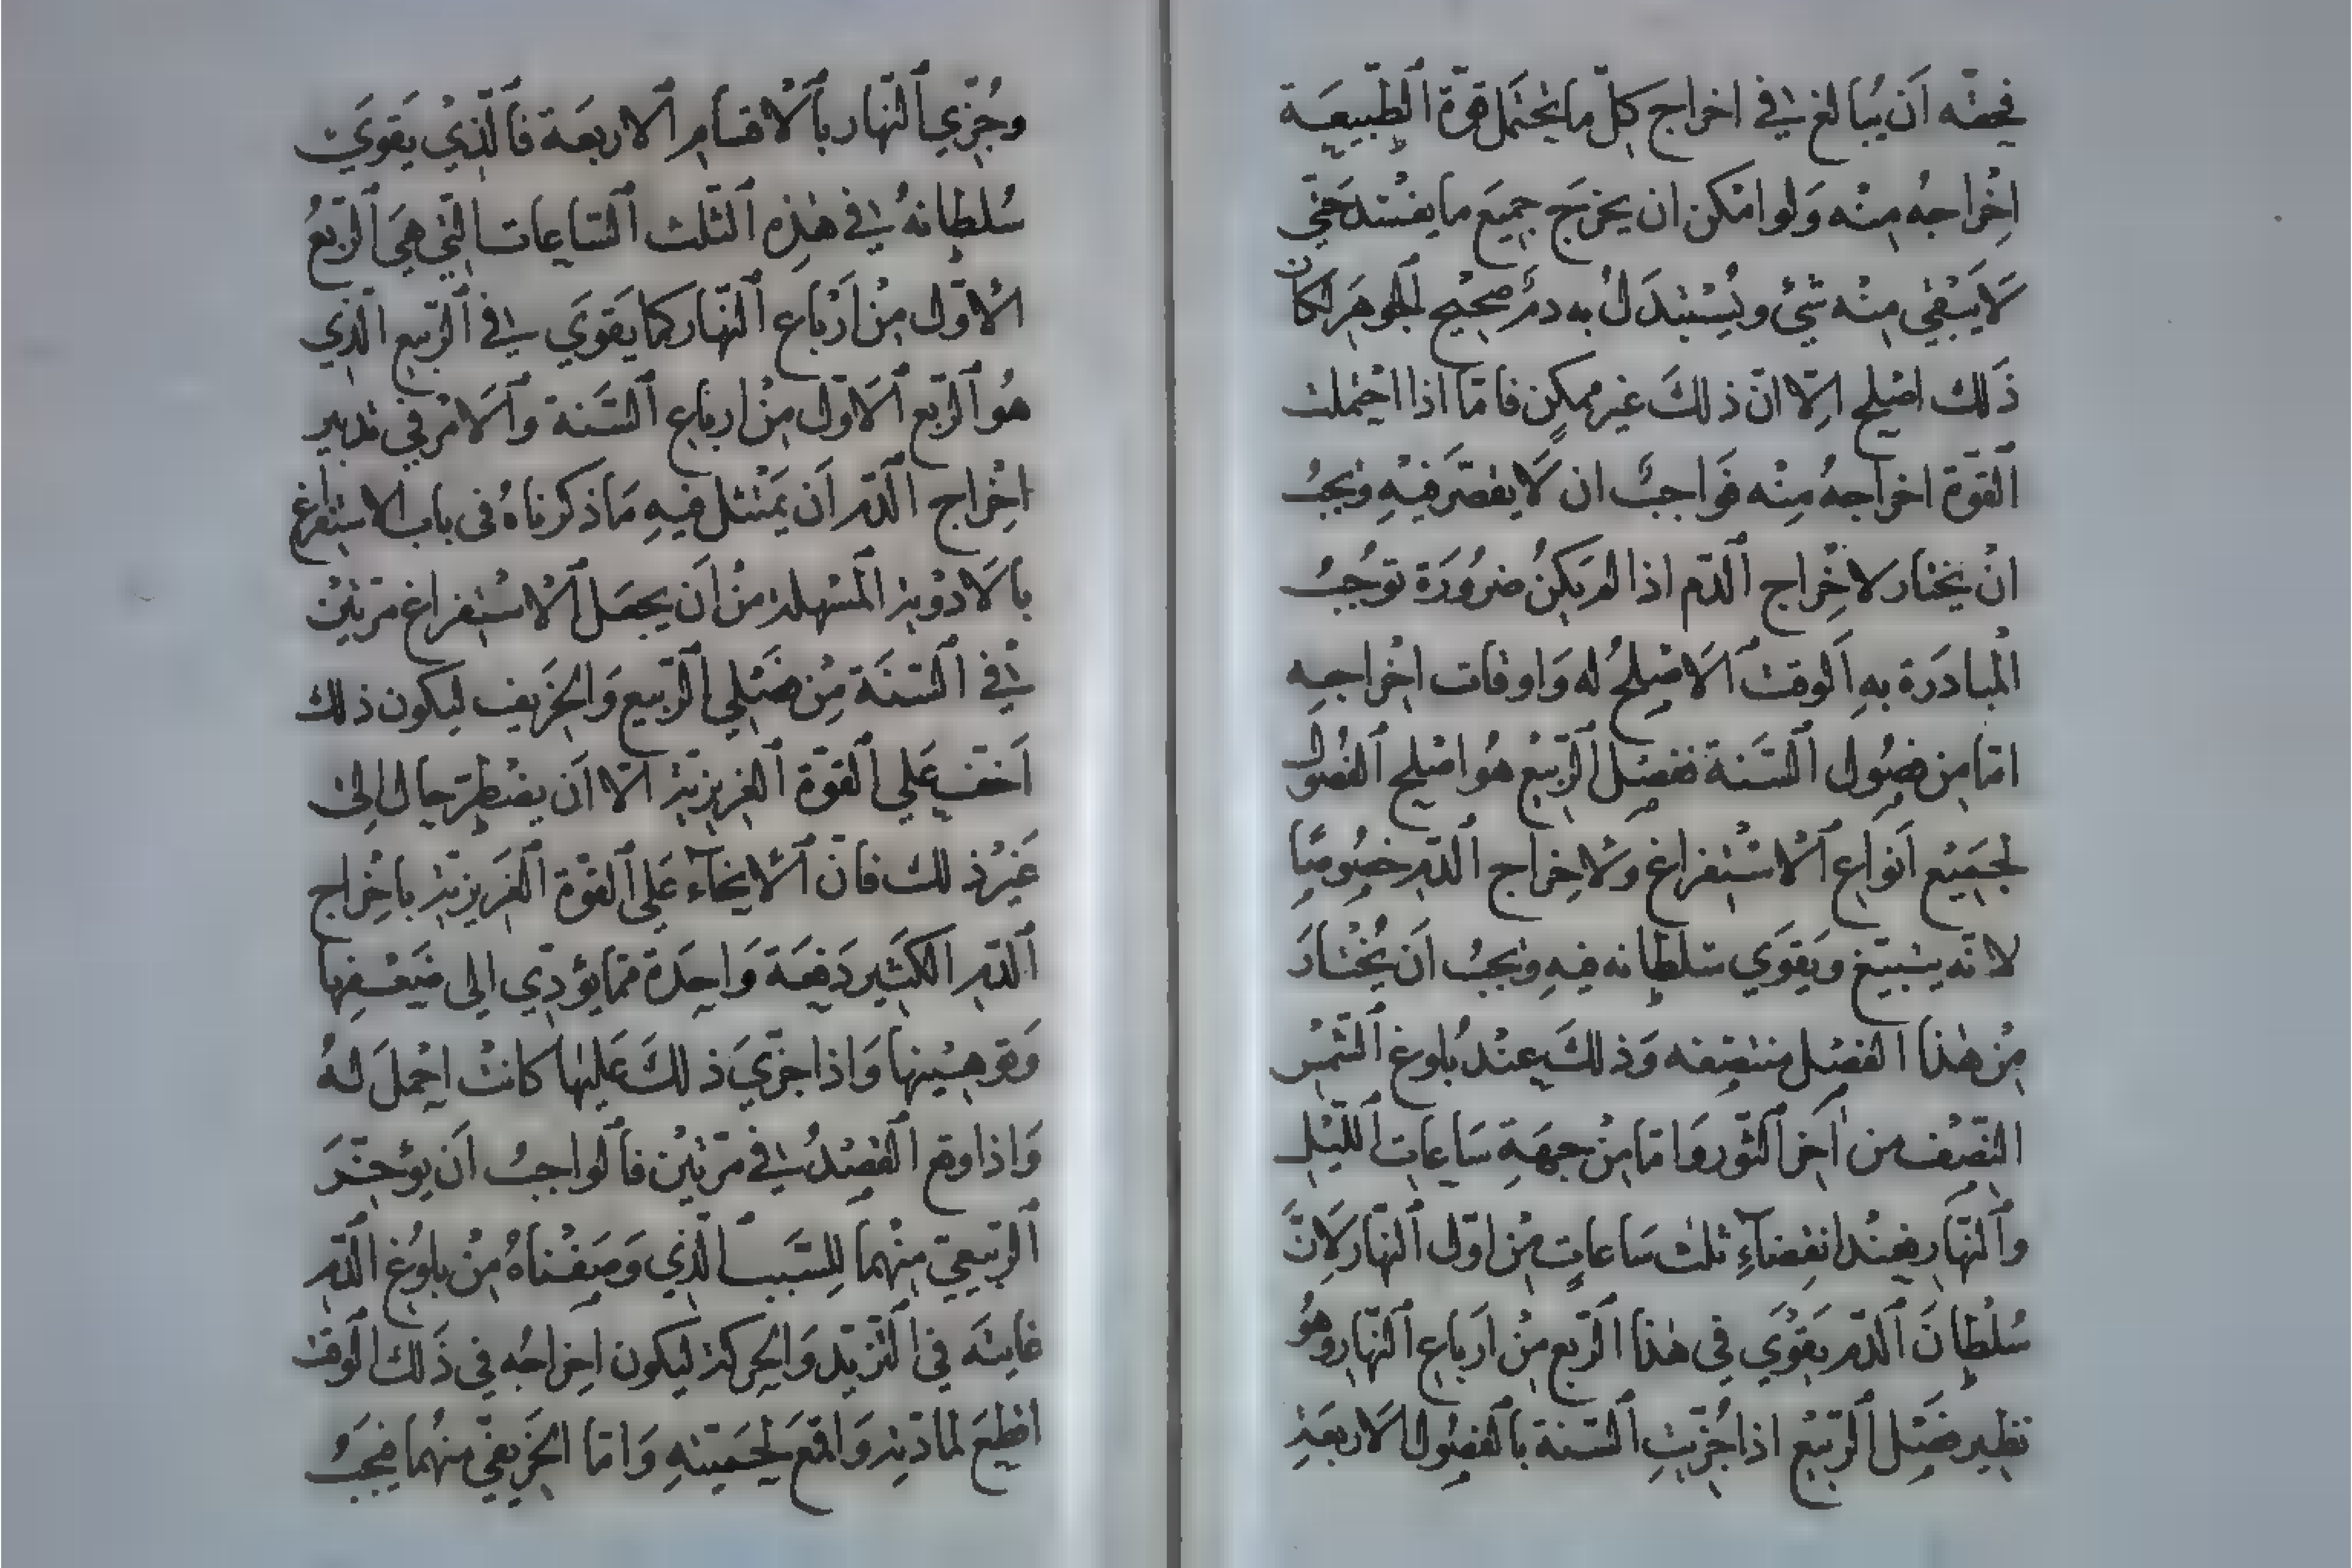 فحقّه اَن يُبالغ في اخراج كلّ ما يحتَمل قوّة الطّبيعَة
اخِراجهُ مِنْه وَلو امْكن ان يخرَج جميَع ما يفسْد حَتّي
لَا يَبْقي مِنْه شيٌ ويُسْتبْدَلُ به دمٌ صحيْح الجَوهَر لكان
ذَلك اصْلح الّا انّ ذلكَ غير ممكنٍ فامّا اذا احْتملت
القوّة اخراجهُ مِنْه فَواجبٌ ان لَا يقصّر فيْهِ ويجبُ
انْ يَخْتار لاخِراج الدّم اذا لم يَكنْ ضرُورَة توجُبُ
المْبادَرة بهِ الَوقتْ الَاصْلحُ له وَاوقات اخْراجهِ
امّا من فصُول السَّنة ففصْل الرّبيْع هوُ اصْلح الفصُول
لجَمَيْع اَنواع الْاسْتفراغ ولاخِراج الدّم خصُوصًا
لانّه يتبيّغ ويَقوَي سَلطانه فيهِ ويجبُ اَن يُخْتارَ
مِنْ هٰذا الفصْل منتصِفه وَذلكَ عِنْد بُلوغ الشّمسْ
النّصْف من اَخر الثّور وَامّا منْ جهَةِ سَاعات اللّيْل
واَلنّهَار فعِنْد انقِضاءِ ثلث سَاعاتٍ مِن اوّل النّهار لَانَّ
سُلْطانَ الدّم يقوَي في هٰذا الرّبع مِنْ ارَباع النّهار وهُو
نظير فصَْل الرّبيْع اذا جُزّيتِ السّنة بالفصُول الَاربعَة
وجُزّي النّهار باَلْاقسَام الاربعَة فاَلّذيْ يَقوَيْ
سُلطانهُ في هٰذِه الَثّلث السّاعات الّتي هيَ الرّبعُ
الاوّل مِنْ اَرْباع النّهار كما يَقوَي في الرّبيع الّذي
هوُ الرّبع الَاوّل مِنْ ارباع السَّنة واَلَامْر في تدبير
اخِْراج الدّم اَن يَمْتثل فيهِ مَا ذكرناهُ فى باب الاستفراغ
بالَادْوية الَمسْهلة منْ اَن يجعَل الْاسْتفراغ مرّتينْ
في السّنَة مِنْ فصَْلي الرّبيع وَالخَريف ليكون ذلك
اَخفّ عَلي القوّة الغريزيّة الّا اَن يضْطرّ حال الىْ
غَيْر ذلك فانّ الْانحاَء عَلي القوّة الغَريزيّة باخِْراج
الدّم الكثَير دَفعَة وَاحِدَة ممّا يؤدّي الى ضَعْفها
وَتوهيْنها وَاذا جزّيَ ذلكَ عَليْها كانتْ احْملَ لهُ
وَاذا وقع الفصْدُ في مرّتيْن فاَلواجبُ اَن يؤخّرَ
الرّبيعيّ مِنْهما للسَّبب الّذي وَصَفْناهُ مِنْ بلوُغ الدّم
غايتَه في التزيّد وَالحَركة ليكون اخراجُه في ذَلك الوقت
اقطعَ لمادّتِه وَاقمعَ لحَميّتهِ وَامّا الخَريفيّ منهُما فيجَبُ